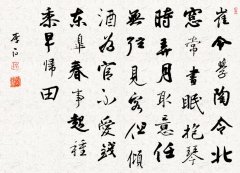 崔令學陶令北
窓常晝眠抱琴
時弄月取意任
無弦見客但傾
酒為官不愛錢
東皋春事起種
黍早歸田